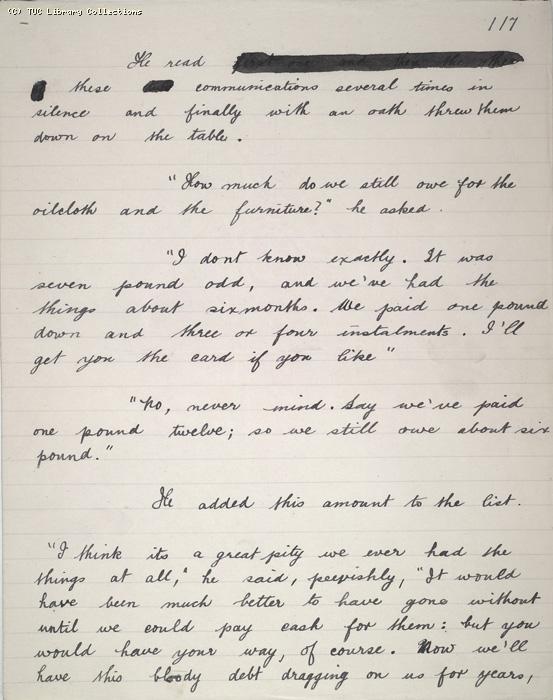 (C) TUC Library Collections
117
He read
these communications several times in
silence and finally with an oath threw them
down on the table.
"How much do we still owe for the
oilcloth and the furniture?" he asked.
"I dont know exactly. It was
seven pound odd, and we've had the
things about six months. We paid one pound
down and three or four instalments. I'll
get you the card if you like"
"No, never mind. Say we've paid
one pound twelve; so we still owe about six
pound."
He added this amount to the list.
"I think its a great pity we ever had the
things at all," he said, peevishly, "It would
have been much better to have gone without
until we could pay cash for them: but you
would have your way, of course. Now we'll
have this bloody debt dragging on us for years,